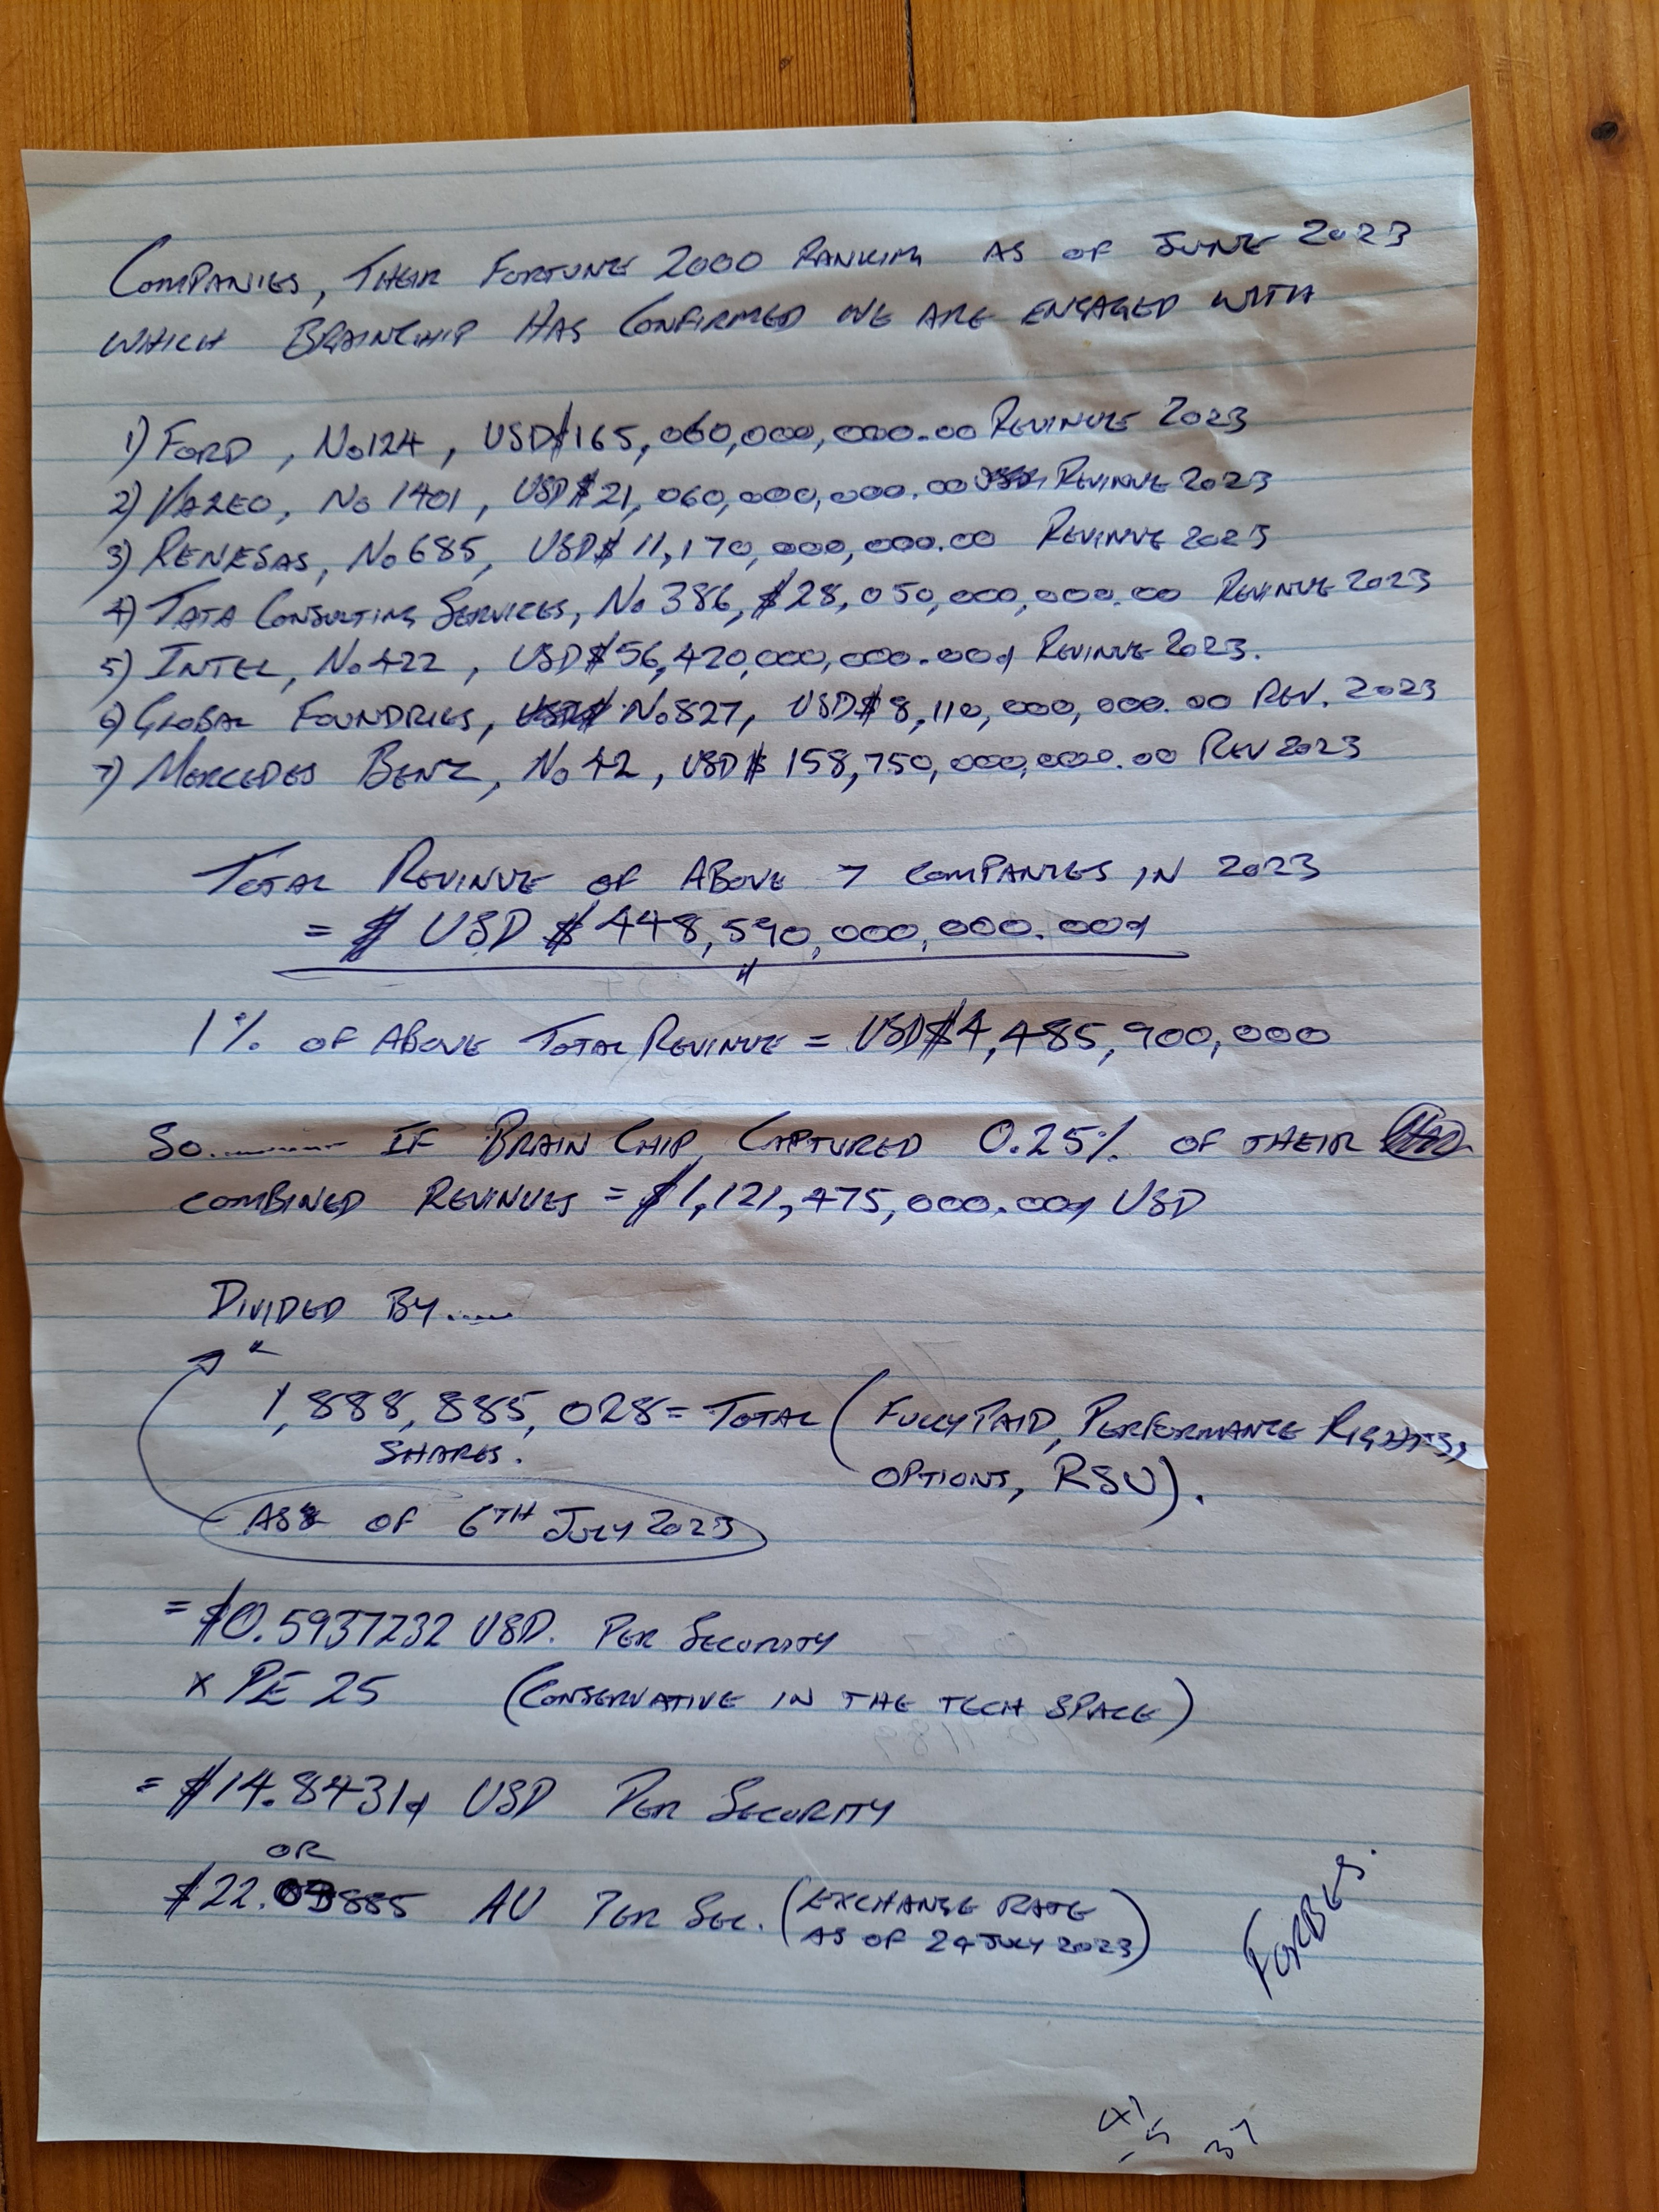 COMPANIES, THEIR FORTUNE 2000 RANKING AS OF JUNE 2023
WHICH BRAINCHIP HAS CONFIRMED WE ARE ENGAGED WITH
1) FORD, No 124, USD$165,060,000,000.00 REVINUE 2023
2) VALEO, No 1401, USD$21,060,000,000.00 REVINUE 2023
3) RENESAS, No 685, USD$ 11,170,000,000.00 REVINUE 2023
4) TATA CONSULTING SERVICES, No 386, $28,050,000,000.00 REVINUE 2023
5) INTEL, No 422, USD$56,420,000,000.00 REVINUE 2023.
6) GLOBAL FOUNDRIES, No 827, USD$8,110,000,000.00 REV. 2023
7) MERCEDES BENZ, No 42, USD$ 158,750,000,000.00 REV 2023
TOTAL REVINUE OF ABOVE 7 COMPANIES IN 2023
= $ USD $448,590,000,000.00
1% OF ABOVE TOTAL REVINUE = USD$4,485,900,000
SO......... IF BRAINCHIP CAPTURED 0.25% OF THEIR
COMBINED REVINUES = $1,121,475,000.00 USD
DIVIDED BY.....
1,888,885,028 = TOTAL (FULLY PAID, PERFORMANCE RIGHTS,
SHARES. OPTIONS, RSU).
AS OF 6TH JULY 2023
= $0.5937232 USD. PER SECURITY
x PE 25 (CONSERVATIVE IN THE TECH SPACE)
= $14.8431 USD PER SECURITY
OR
$22. AU PER SEC. (EXCHANGE RATE
AS OF 24 JULY 2023)
FORBES.